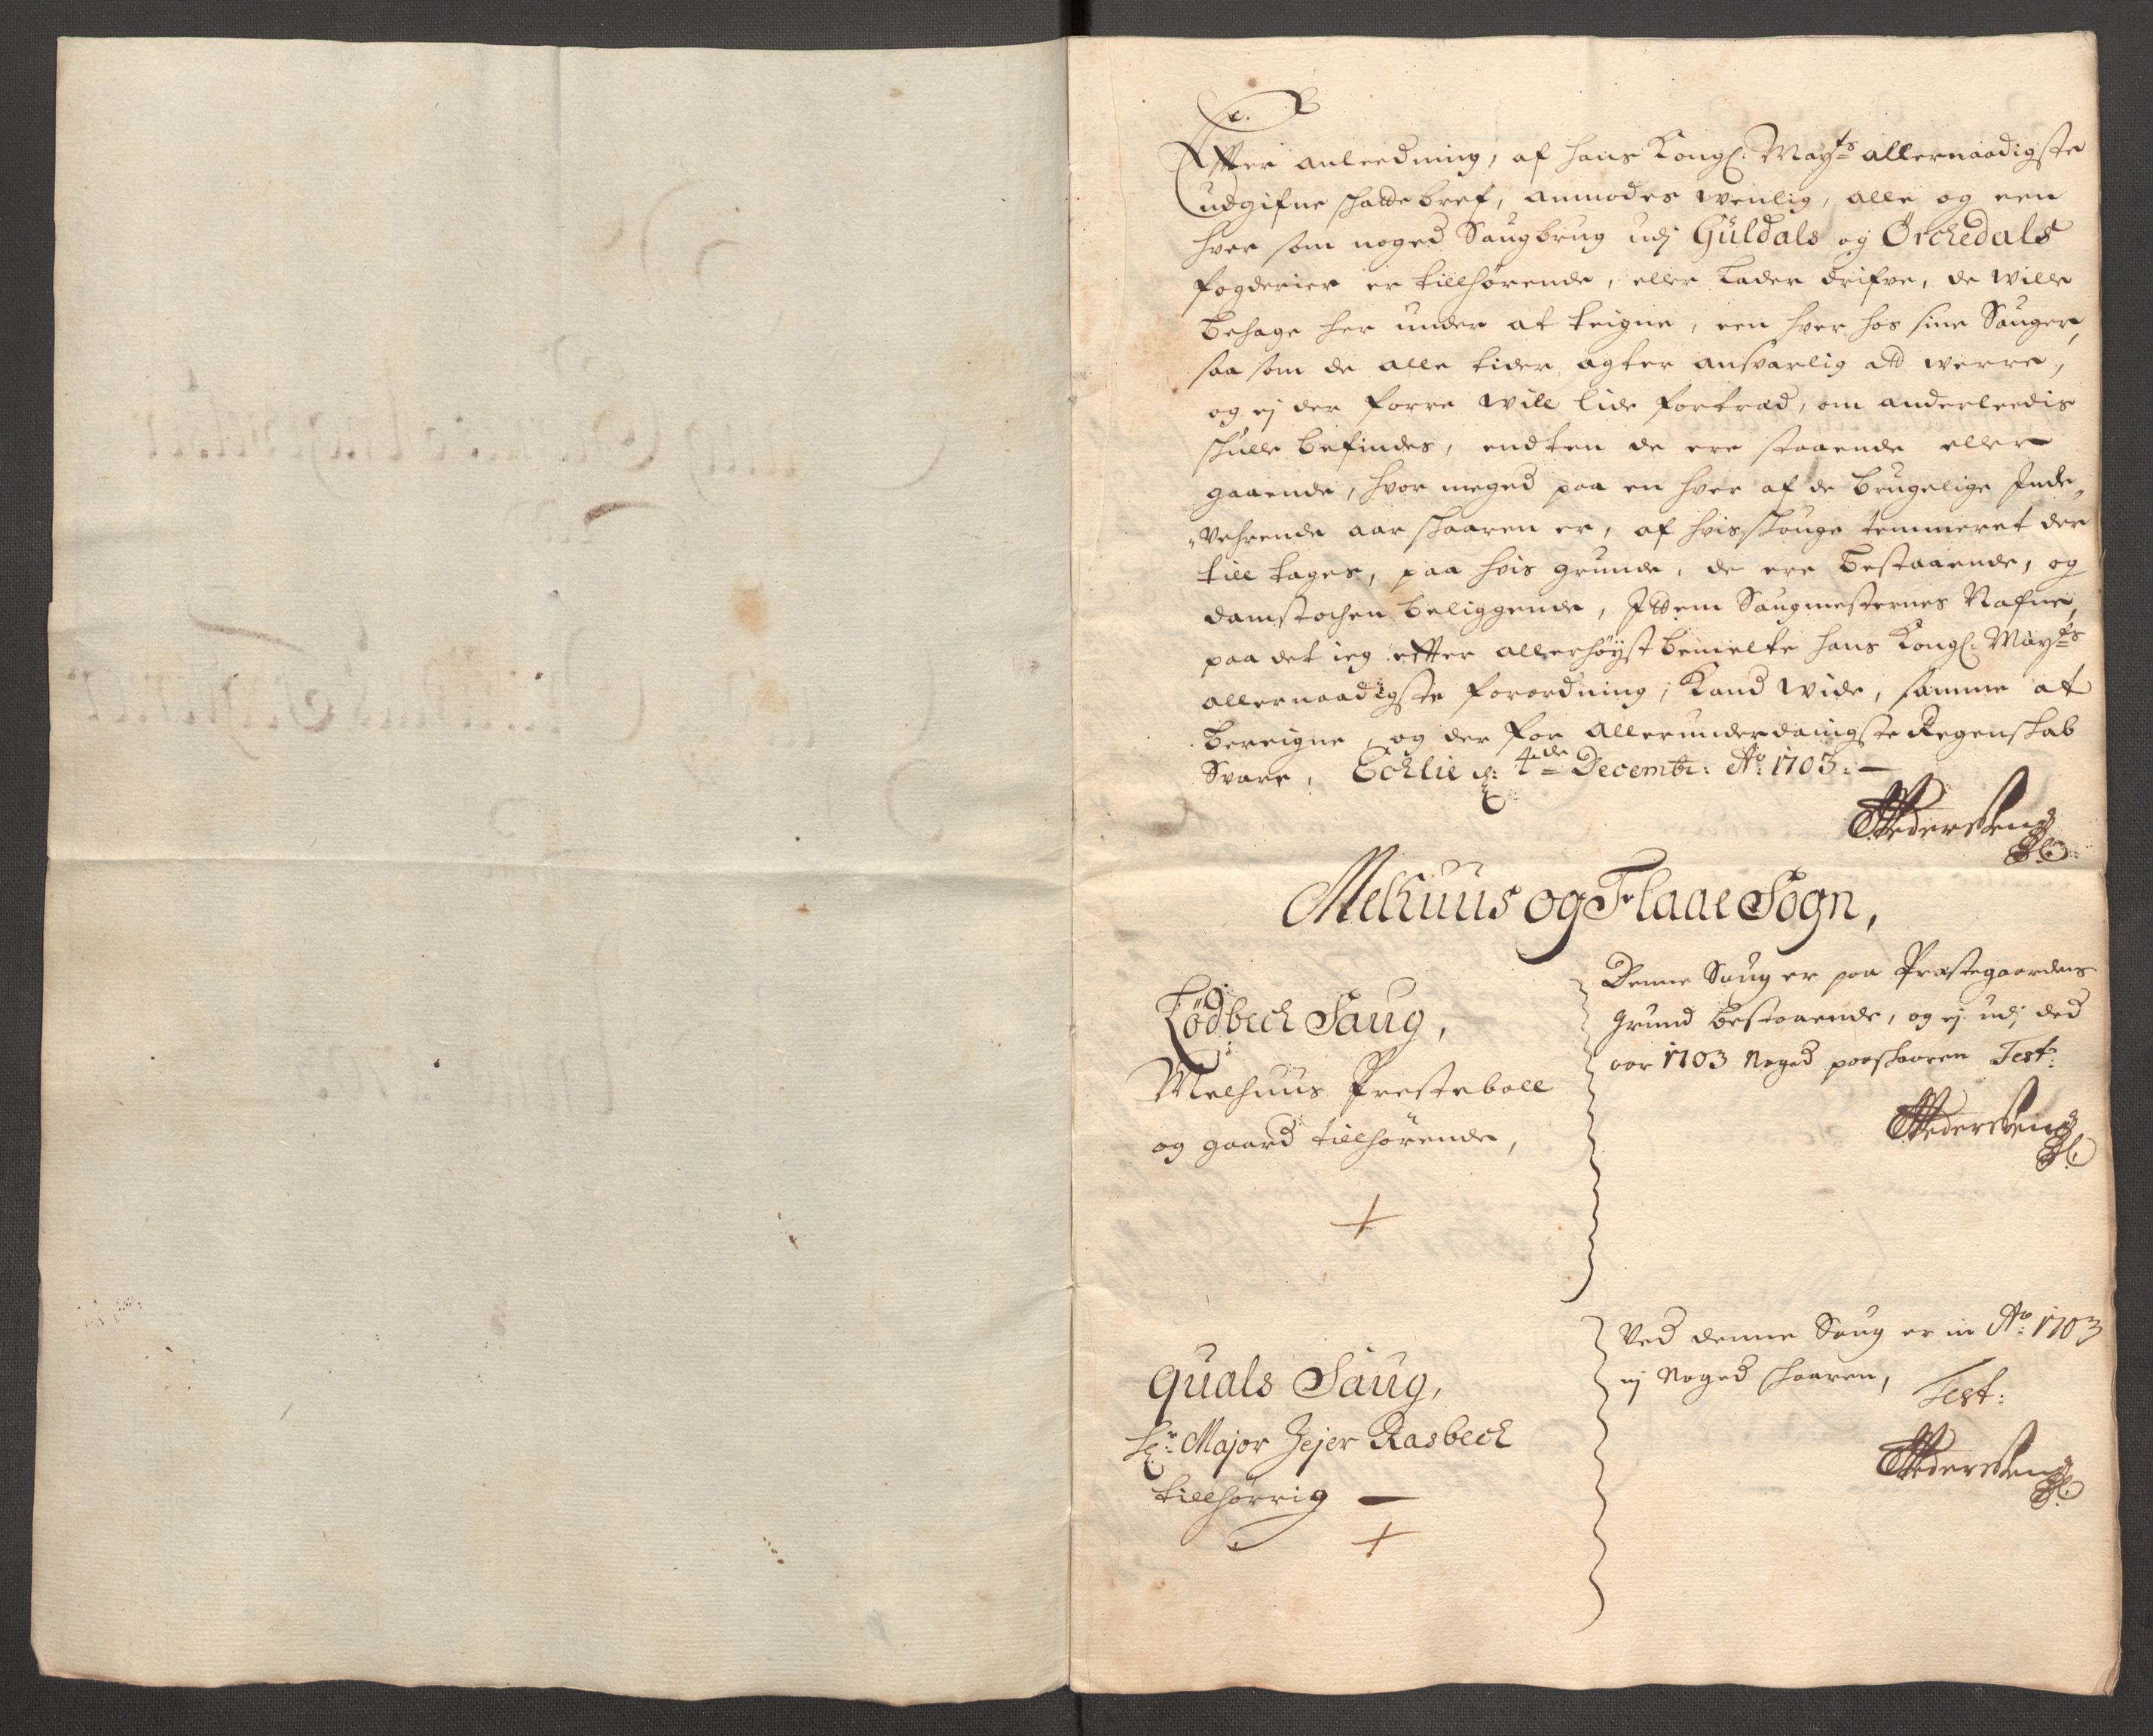 Efter anleedning, af hans Kongl: Mayts allernaadigste
udgifne schattebref, anmodes wenlig, alle og een
hver som noged Saugbrug udj Güldals og Örchedals
fogderier er tillhörende, eller lader drifve, de wille
behage her under at teigne, een hver hos sine Sauger,
saa som de alle tider agter ansvarlig att werre,
og ej der forre will lide fortræd, om anderleedis
skulle befindes, endten de ere staaende eller
gaaende, hvor meged paa en hver af de brugelige Inde„
„verende aar skaaren er, af hvis skouge temmeret der
till tages, paa hvis grunde, de ere bestaaende, og
damstochen beliggende, Ittem Saugmesternes Nafne,
paa det ieg effter allerhöyst bemelte hans Kongl: Mayts
allernaadigste forordning, kand wide, samme at
bereigne, og der for allerunderdanigste Regenskab
Svare, Echlie d: 4de Decembr: Ao: 1703. —
Melhuus og Flaae Sogn,
Lödbech Saug,
Melhuus Presteboll
og gaard tillhörende,
Denne Saug er paa Præstegaardens
grund bestaaende, og ej udj ded
aar 1703 Noged paaskaaren Test:
Quals Saug,
Hr: Major Jejer Rasbech
tillhörrig —
Ved denne Saug er in Ao: 1703
ej Noged skaaren,
Test: